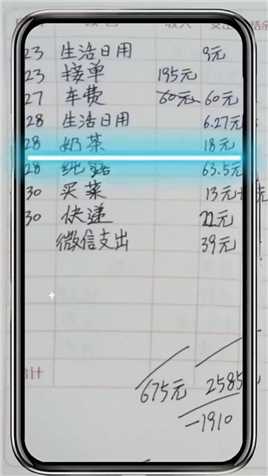 23 生活日用 9元
23 接单 195元
27 车费 60元 60元
28 生活日用 6.27元
28 奶茶 18元
28 63.5元
30 买菜 13元
30 快递 22元
微信支出 39元
计
675元 2585
-1910